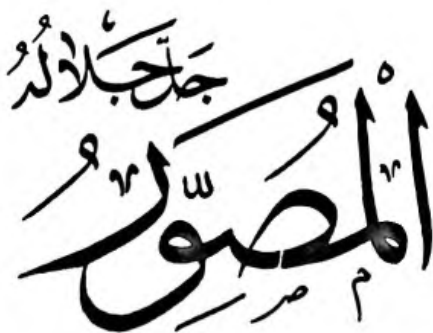 جل جلاله
المصور